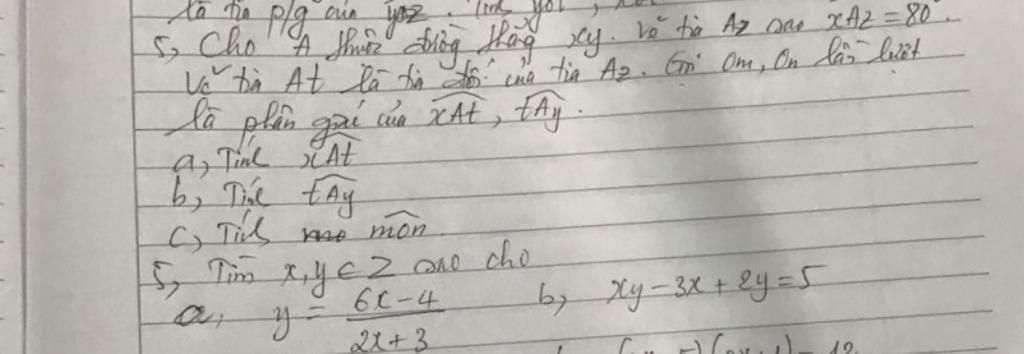 là tia p/g của yoz. Tính
5, Cho A thuộc đường thẳng xy. Vẽ tia Az sao xAz = 80°.
Vẽ tia At là tia đối của tia Az. Gọi Om, On lần lượt
là phân giác của xAt, tAy.
a, Tính xAt
b, Tính tAy
c, Tính môn
5, Tìm x, y ∈ Z sao cho
a, y = (6x-4)/(2x+3) b, xy - 3x + 2y = 5